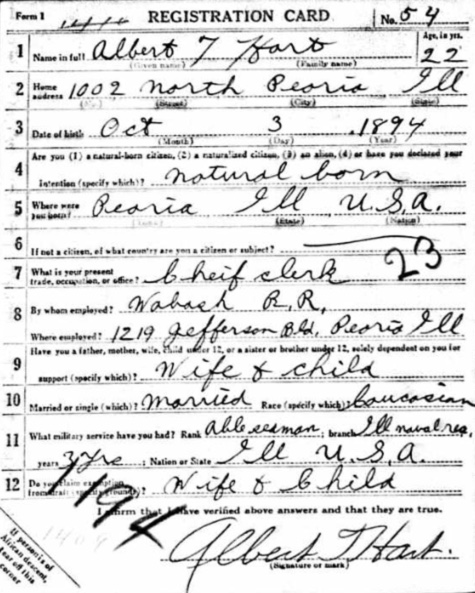 Form 1 REGISTRATION CARD No. 54
1 Name in full Albert T Hart Age, in yrs. 22
(Given name) (Family name)
2 Home address 1002 North Peoria Ill
(No.) (Street) (City) (State)
3 Date of birth Oct 3 1894
(Month) (Day) (Year)
4 Are you (1) a natural-born citizen, (2) a naturalized citizen, (3) an alien, (4) or have you declared your
intention (specify which)? natural born
5 Where were you born? Peoria Ill U.S.A.
(State) (Nation)
6 If not a citizen, of what country are you a citizen or subject?
23
7 What is your present trade, occupation, or office? Cheif clerk
8 By whom employed? Wabash R.R,
Where employed? 1219 Jefferson Bld, Peoria Ill
9 Have you a father, mother, wife, child under 12, or a sister or brother under 12, solely dependent on you for
support (specify which)? Wife & child
10 Married or single (which)? Married Race (specify which)? Caucasian
11 What military service have you had? Rank Able seaman ; branch Ill naval res,
years 3 yrs ; Nation or State Ill U.S.A.
12 Do you claim exemption from draft (specify grounds)? Wife & Child
I affirm that I have verified above answers and that they are true.
Albert T Hart.
(Signature or mark)
If person is of
African descent,
tear off this
corner